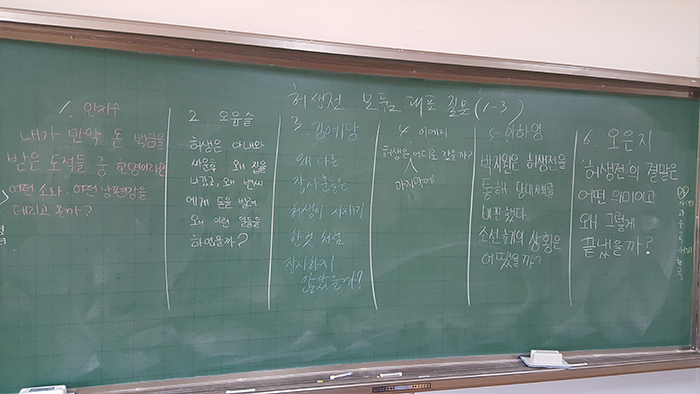 허생전 모둠 대표 질문 (1-3)
1. 안지수
내가 만약 돈 백금을
받은 도적들 중 한명이라면
어떤 소와, 어떤 남편감을
데리고 올까?
2. 오윤슬
허생은 아내와
싸운후 왜 집을
나갔고, 왜 변씨
에게 돈을 빌려
와서 이런 일들을
하였을까?
3. 김예담
왜 다른
장사꾼들은
허생이 사재기
한것 처럼
장사하지
않았을까?
4. 이예지
허생은 어디로 갔을까?
마지막에
5. 이하영
박지원은 허생전을
통해 당대사회를
비판했다.
조선후기의 상황은
어땠을까?
6. 오은지
'허생전'의 결말은
어떤 의미이고
왜 그렇게
끝냈을까?